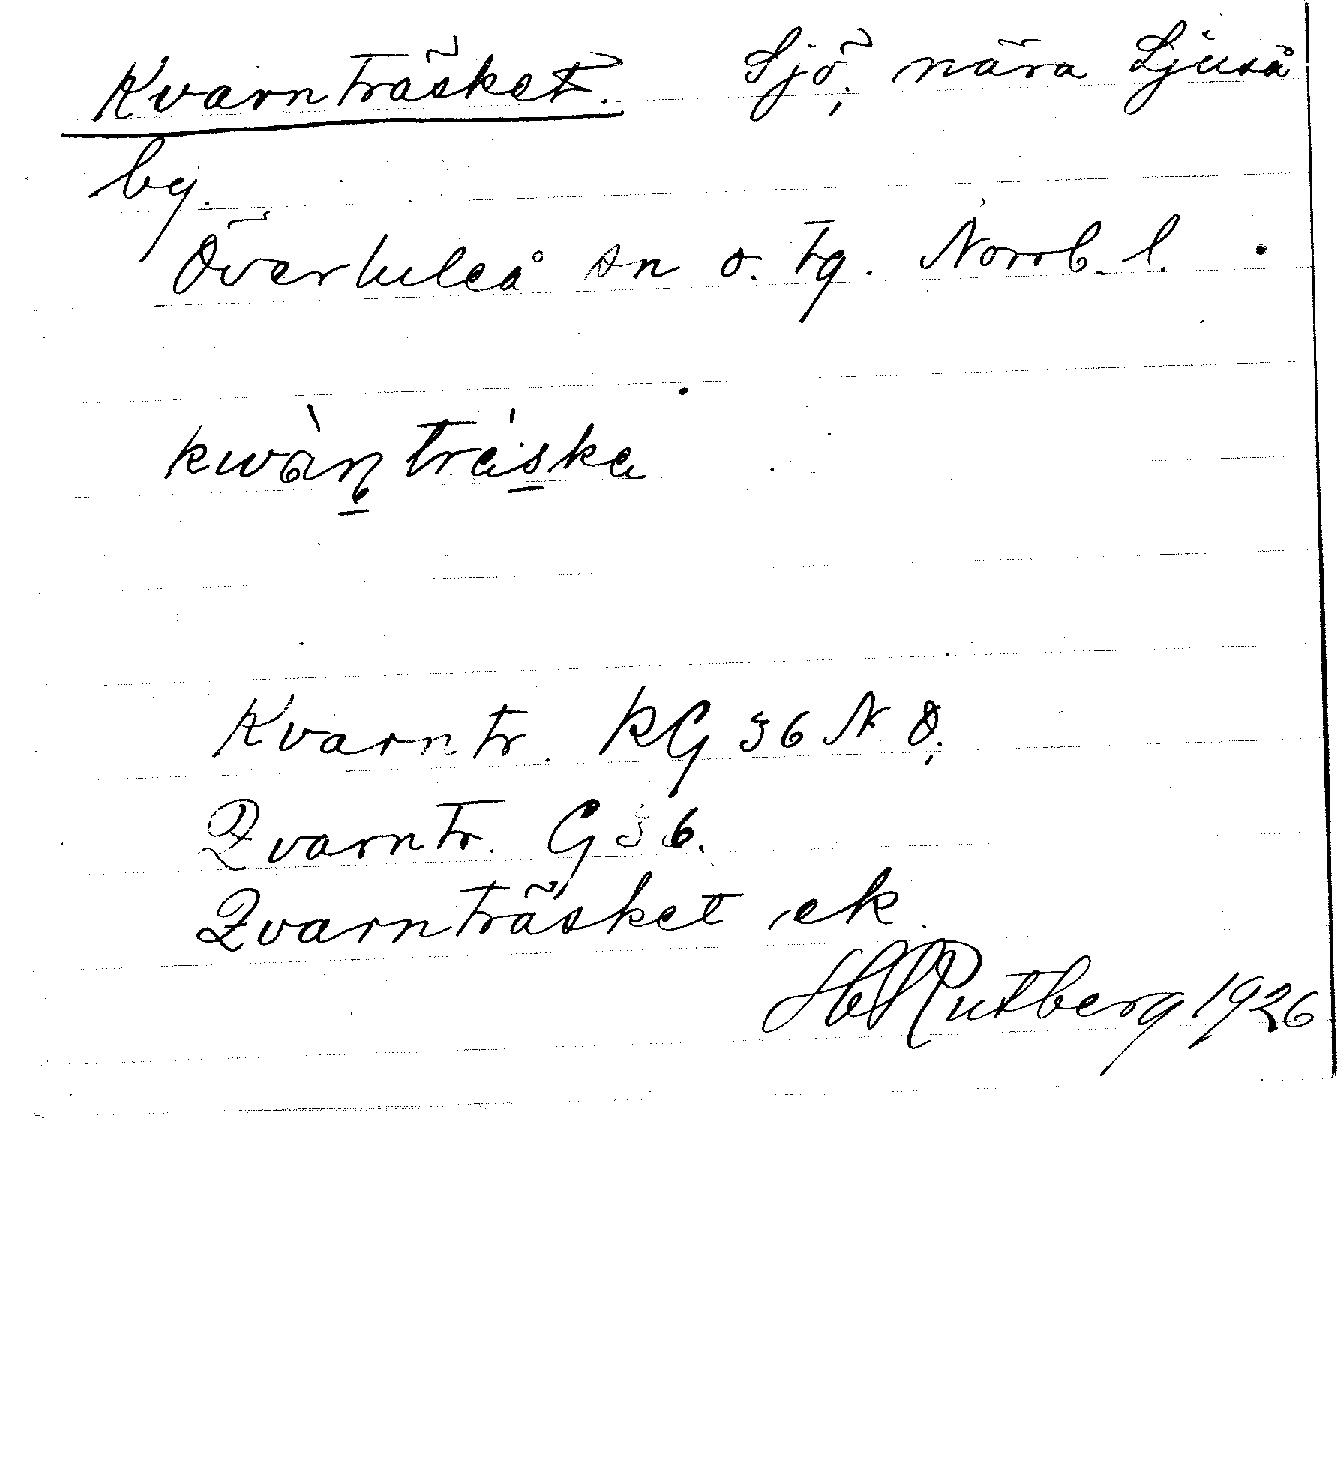 Kvarnträsket. Sjö, nära Ljuså
by.
Överluleå sn o. tg. Norrb. l.
kwàṇtráska
Kvarntr. RG 36 N Ö;
Qvarntr. G 36.
Qvarnträsket, ek.
H Rutberg 1926